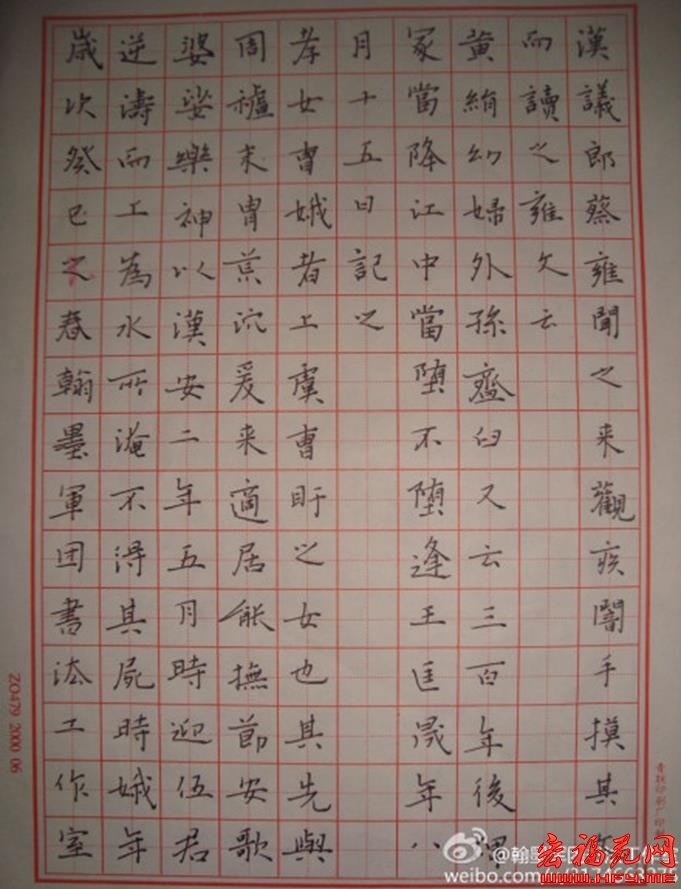 漢議郎蔡雍聞之来觀疾闇手摸其文
而讀之雍文云
黃絹幼婦外孫齏臼又云三百年後
冢當降江中當墮不墮逢王匡晟年八
月十五日記之
孝女曹娥者上虞曹盱之女也其先與
周禮末胄荒沉爰来適居能撫節安歌
婆娑樂神以漢安二年五月時迎伍君
逆濤而上為水所淹不得其屍時娥年
歲次癸巳之春翰墨軍団書法工作室
ZO479 2000 06
weibo.com
宏福苑网